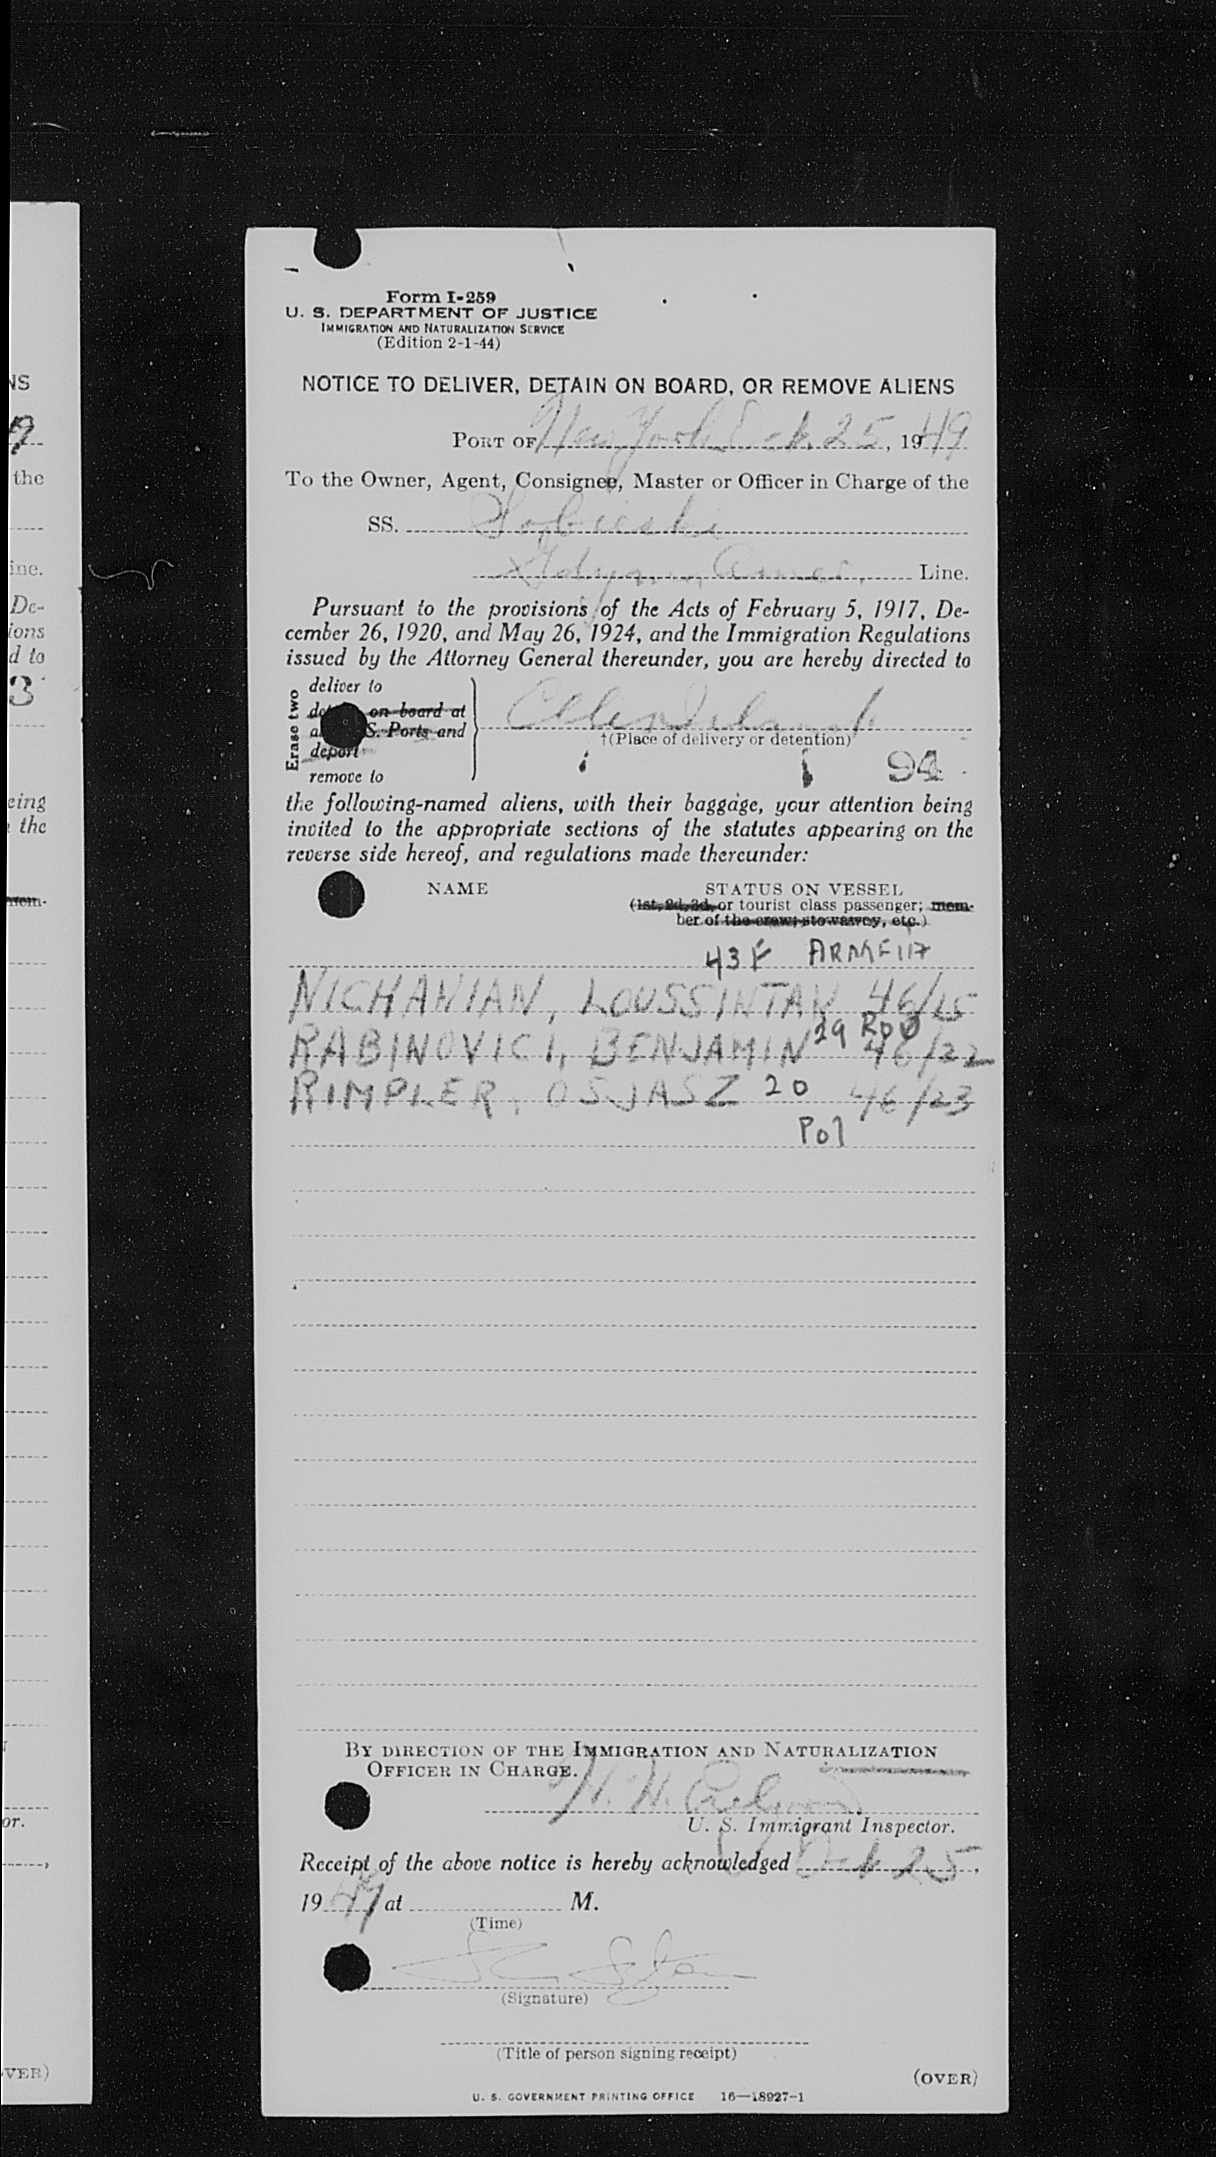 Form I-259
U. S. DEPARTMENT OF JUSTICE
IMMIGRATION AND NATURALIZATION SERVICE
(Edition 2-1-44)
NOTICE TO DELIVER, DETAIN ON BOARD, OR REMOVE ALIENS
PORT OF New York Oct. 25, 1949
To the Owner, Agent, Consignee, Master or Officer in Charge of the
SS. Sobieski
Gdynia Amer. Line.
Pursuant to the provisions of the Acts of February 5, 1917, De-
cember 26, 1920, and May 26, 1924, and the Immigration Regulations
issued by the Attorney General thereunder, you are hereby directed to
Erase two
deliver to
on board at
S. Ports and
deport
remove to
Ellis Island
†(Place of delivery or detention)
94
the following-named aliens, with their baggage, your attention being
invited to the appropriate sections of the statutes appearing on the
reverse side hereof, and regulations made thereunder:
NAME
STATUS ON VESSEL
(1st, 2d, 3d, or tourist class passenger; mem-
ber of the crew; stowaway, etc.)
43 F
NICHANIAN, LOUSSINTAK 46/15
RABINOVICI, BENJAMIN 29 46/22
RIMPLER, OSJASZ 20 46/23
Pol
BY DIRECTION OF THE IMMIGRATION AND NATURALIZATION
OFFICER IN CHARGE.
U. S. Immigrant Inspector.
Receipt of the above notice is hereby acknowledged Oct 25,
1949 at M.
(Time)
(Signature)
(Title of person signing receipt)
(OVER)
U. S. GOVERNMENT PRINTING OFFICE 16—18927-1